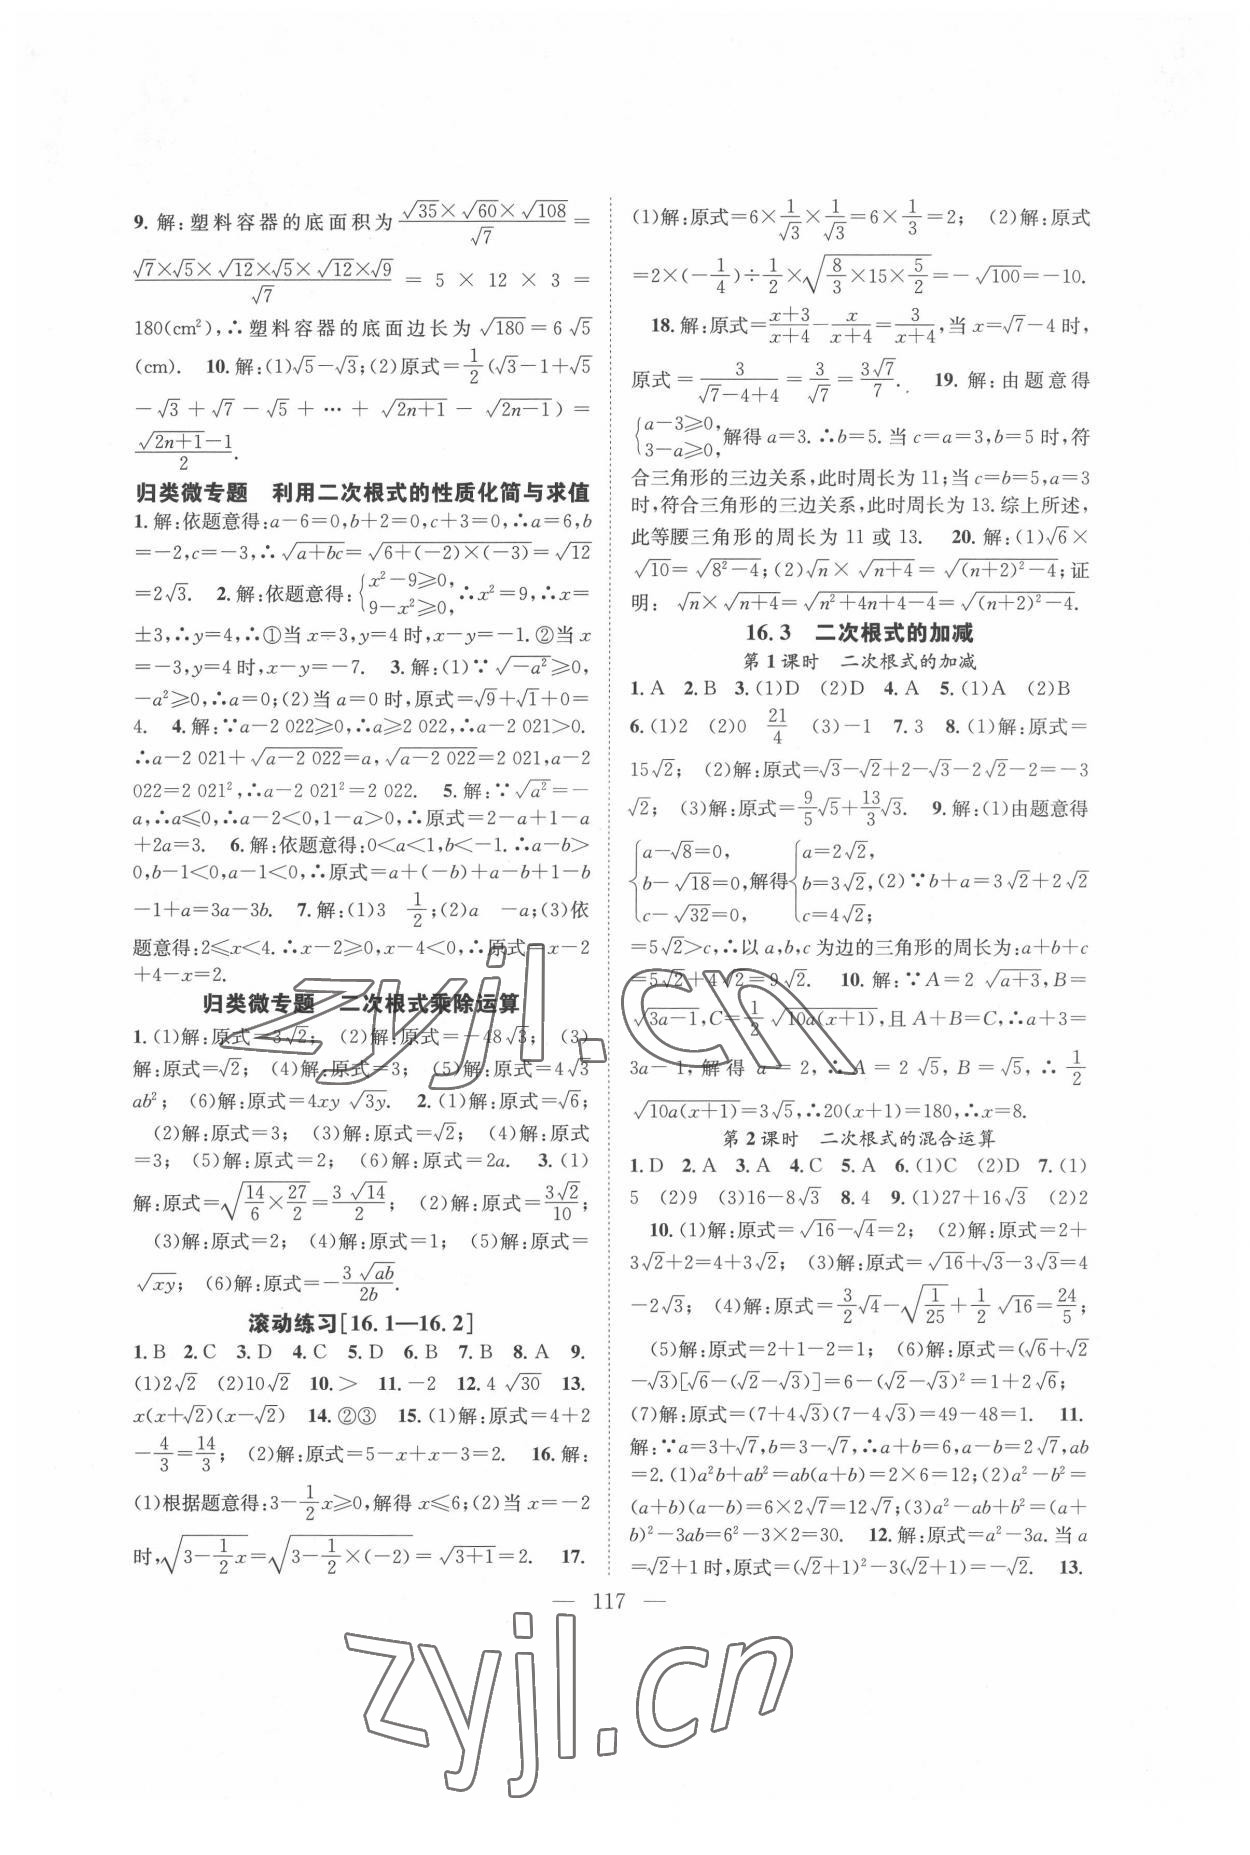 9. 解:塑料容器的底面积为 (√35×√60×√108)/√7 =
(√7×√5×√12×√5×√12×√9)/√7 = 5 × 12 × 3 =
180(cm²),∴塑料容器的底面边长为 √180=6 √5
(cm). 10. 解:(1)√5−√3;(2)原式=1/2(√3−1+√5
−√3+√7−√5+⋯+√(2n+1)−√(2n−1))=
(√(2n+1)−1)/2.
归类微专题 利用二次根式的性质化简与求值
1. 解:依题意得:a−6=0,b+2=0,c+3=0,∴a=6,b
=−2,c=−3,∴√(a+bc)=√(6+(−2)×(−3))=√12
=2√3. 2. 解:依题意得:{x²−9⩾0, 9−x²⩾0,∴x²=9,∴x=
±3,∴y=4,∴①当 x=3,y=4 时,x−y=−1. ②当 x
=−3,y=4 时,x−y=−7. 3. 解:(1)∵√(−a²)⩾0,
−a²⩾0,∴a=0;(2)当 a=0 时,原式=√9+√1+0=
4. 4. 解:∵a−2 022⩾0,∴a⩾2 022,∴a−2 021>0.
∴a−2 021+√(a−2 022)=a,√(a−2 022)=2 021,a−2
022=2 021²,∴a−2 021²=2 022. 5. 解:∵√(a²)=−
a,∴a⩽0,∴a−2<0,1−a>0,∴原式=2−a+1−a
+2a=3. 6. 解:依题意得:0<a<1,b<−1. ∴a−b>
0,b−1<0,a−1<0,∴原式=a+(−b)+a−b+1−b
−1+a=3a−3b. 7. 解:(1)3 1/2;(2)a −a;(3)依
题意得:2⩽x<4. ∴x−2⩾0,x−4<0,∴原式=x−2
+4−x=2.
归类微专题 二次根式乘除运算
1. (1)解:原式=3√2; (2)解:原式=−48√3; (3)
解:原式=√2; (4)解:原式=3; (5)解:原式=4√3
ab²; (6)解:原式=4xy √3y. 2. (1)解:原式=√6;
(2)解:原式=3; (3)解:原式=√2; (4)解:原式
=3; (5)解:原式=2; (6)解:原式=2a. 3. (1)
解:原式=√(14/6×27/2)=3√14/2; (2)解:原式=3√2/10;
(3)解:原式=2; (4)解:原式=1; (5)解:原式=
√xy; (6)解:原式=−3√ab/2b.
滚动练习[16. 1—16. 2]
1. B 2. C 3. D 4. C 5. D 6. B 7. B 8. A 9.
(1)2√2 (2)10√2 10. > 11. −2 12. 4 √30 13.
x(x+√2)(x−√2) 14. ②③ 15. (1)解:原式=4+2
−4/3=14/3; (2)解:原式=5−x+x−3=2. 16. 解:
(1)根据题意得:3−1/2x⩾0,解得 x⩽6;(2)当 x=−2
时,√(3−1/2x)=√(3−1/2×(−2))=√(3+1)=2. 17.
(1)解:原式=6×1/√3×1/√3=6×1/3=2; (2)解:原式
=2×(−1/4)÷1/2×√(8/3×15×5/2)=−√100=−10.
18. 解:原式=(x+3)/(x+4)−x/(x+4)=3/(x+4),当 x=√7−4 时,
原式=3/(√7−4+4)=3/√7=3√7/7. 19. 解:由题意得
{a−3⩾0, 3−a⩾0,解得 a=3. ∴b=5. 当 c=a=3,b=5 时,符
合三角形的三边关系,此时周长为 11;当 c=b=5,a=3
时,符合三角形的三边关系,此时周长为 13. 综上所述,
此等腰三角形的周长为 11 或 13. 20. 解:(1)√6×
√10=√(8²−4);(2)√n×√(n+4)=√((n+2)²−4);证
明:√n×√(n+4)=√(n²+4n+4−4)=√((n+2)²−4).
16. 3 二次根式的加减
第 1 课时 二次根式的加减
1. A 2. B 3. (1)D (2)D 4. A 5. (1)A (2)B
6. (1)2 (2)0 21/4 (3)−1 7. 3 8. (1)解:原式=
15√2; (2)解:原式=√3−√2+2−√3−2√2=2=−3
√2; (3)解:原式=9/5√5+13/3√3. 9. 解:(1)由题意得
{a−√8=0, b−√18=0, c−√32=0,解得{a=2√2, b=3√2, c=4√2;(2)∵b+a=3√2+2√2
=5√2>c,∴以 a,b,c 为边的三角形的周长为:a+b+c
=5√2+4√2=9√2. 10. 解:∵A=2 √(a+3),B=
√(3a−1),C=1/2 √(10a(x+1)),且 A+B=C,∴a+3=
3a−1,解得 a=2,∴A=2√5,B=√5,∴1/2
√(10a(x+1))=3√5,∴20(x+1)=180,∴x=8.
第 2 课时 二次根式的混合运算
1. D 2. A 3. A 4. C 5. A 6. (1)C (2)D 7. (1)
5 (2)9 (3)16−8√3 8. 4 9. (1)27+16√3 (2)2
10. (1)解:原式=√16−√4=2; (2)解:原式=2+
3√2+2=4+3√2; (3)解:原式=√16+√3−3√3=4
−2√3; (4)解:原式=3/2√4−√(1/25)+1/2√16=24/5;
(5)解:原式=2+1−2=1; (6)解:原式=(√6+√2
−√3)[√6−(√2−√3)]=6−(√2−√3)²=1+2√6;
(7)解:原式=(7+4√3)(7−4√3)=49−48=1. 11.
解:∵a=3+√7,b=3−√7,∴a+b=6,a−b=2√7,ab
=2. (1)a²b+ab²=ab(a+b)=2×6=12;(2)a²−b²=
(a+b)(a−b)=6×2√7=12√7;(3)a²−ab+b²=(a+
b)²−3ab=6²−3×2=30. 12. 解:原式=a²−3a. 当 a
=√2+1 时,原式=(√2+1)²−3(√2+1)=−√2. 13.
— 117 —
zyjl.cn
zyjl.cn